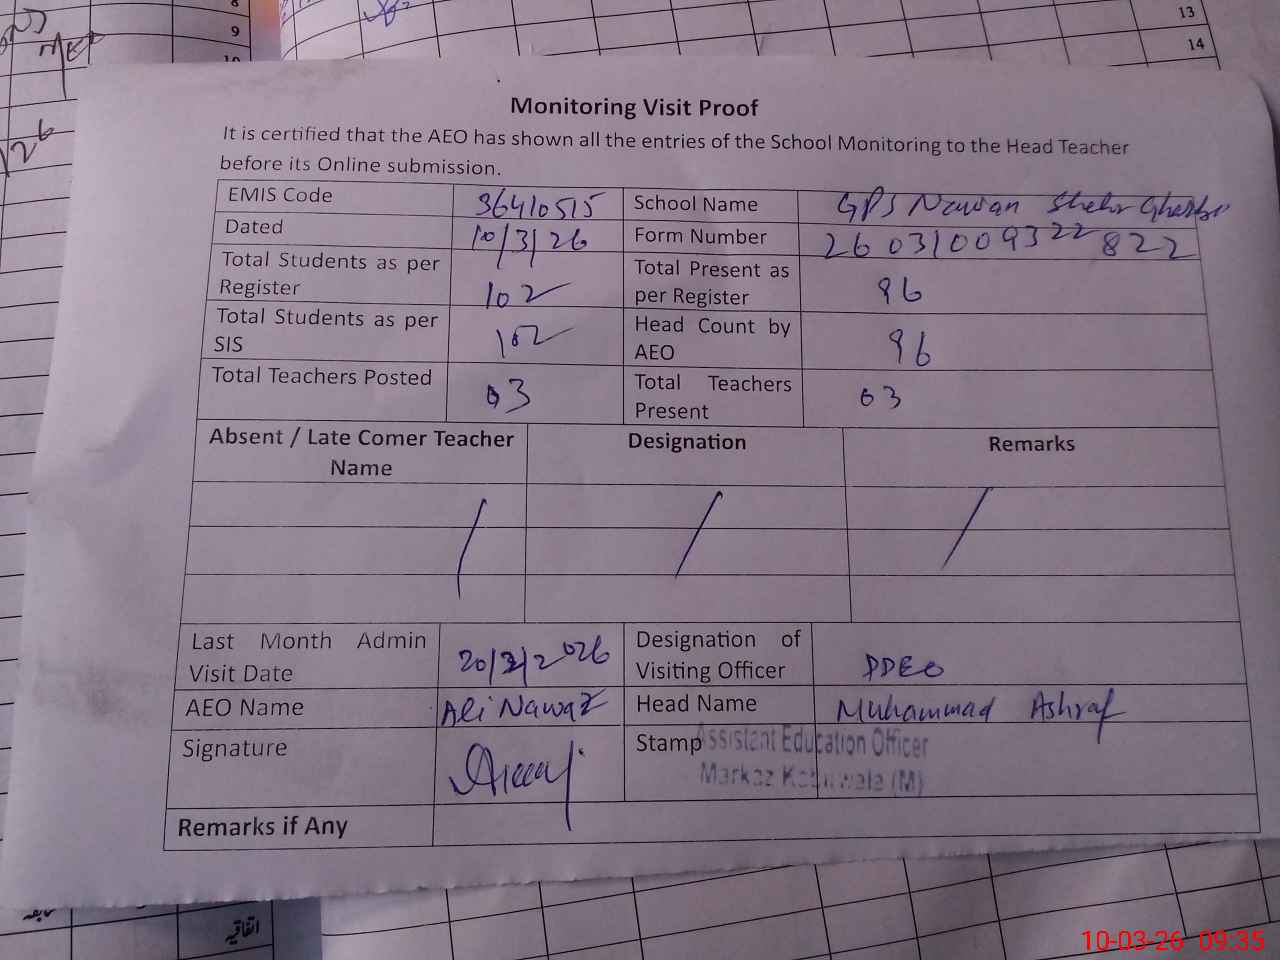 8
9
10
13
14
Monitoring Visit Proof
It is certified that the AEO has shown all the entries of the School Monitoring to the Head Teacher
before its Online submission.
EMIS Code 36410515 School Name GPS Nawan Shehr
Dated 10/3/26 Form Number 26031009322822
Total Students as per Register 102 Total Present as per Register 96
Total Students as per SIS 102 Head Count by AEO 96
Total Teachers Posted 03 Total Teachers Present 03
Absent / Late Comer Teacher Name Designation Remarks
Last Month Admin Visit Date 20/2/2026 Designation of Visiting Officer DDEO
AEO Name Ali Nawaz Head Name Muhammad Ashraf
Signature Stamp Assistant Education Officer
Markaz (M)
Remarks if Any
اتفاقیہ
10-03-26 09:35